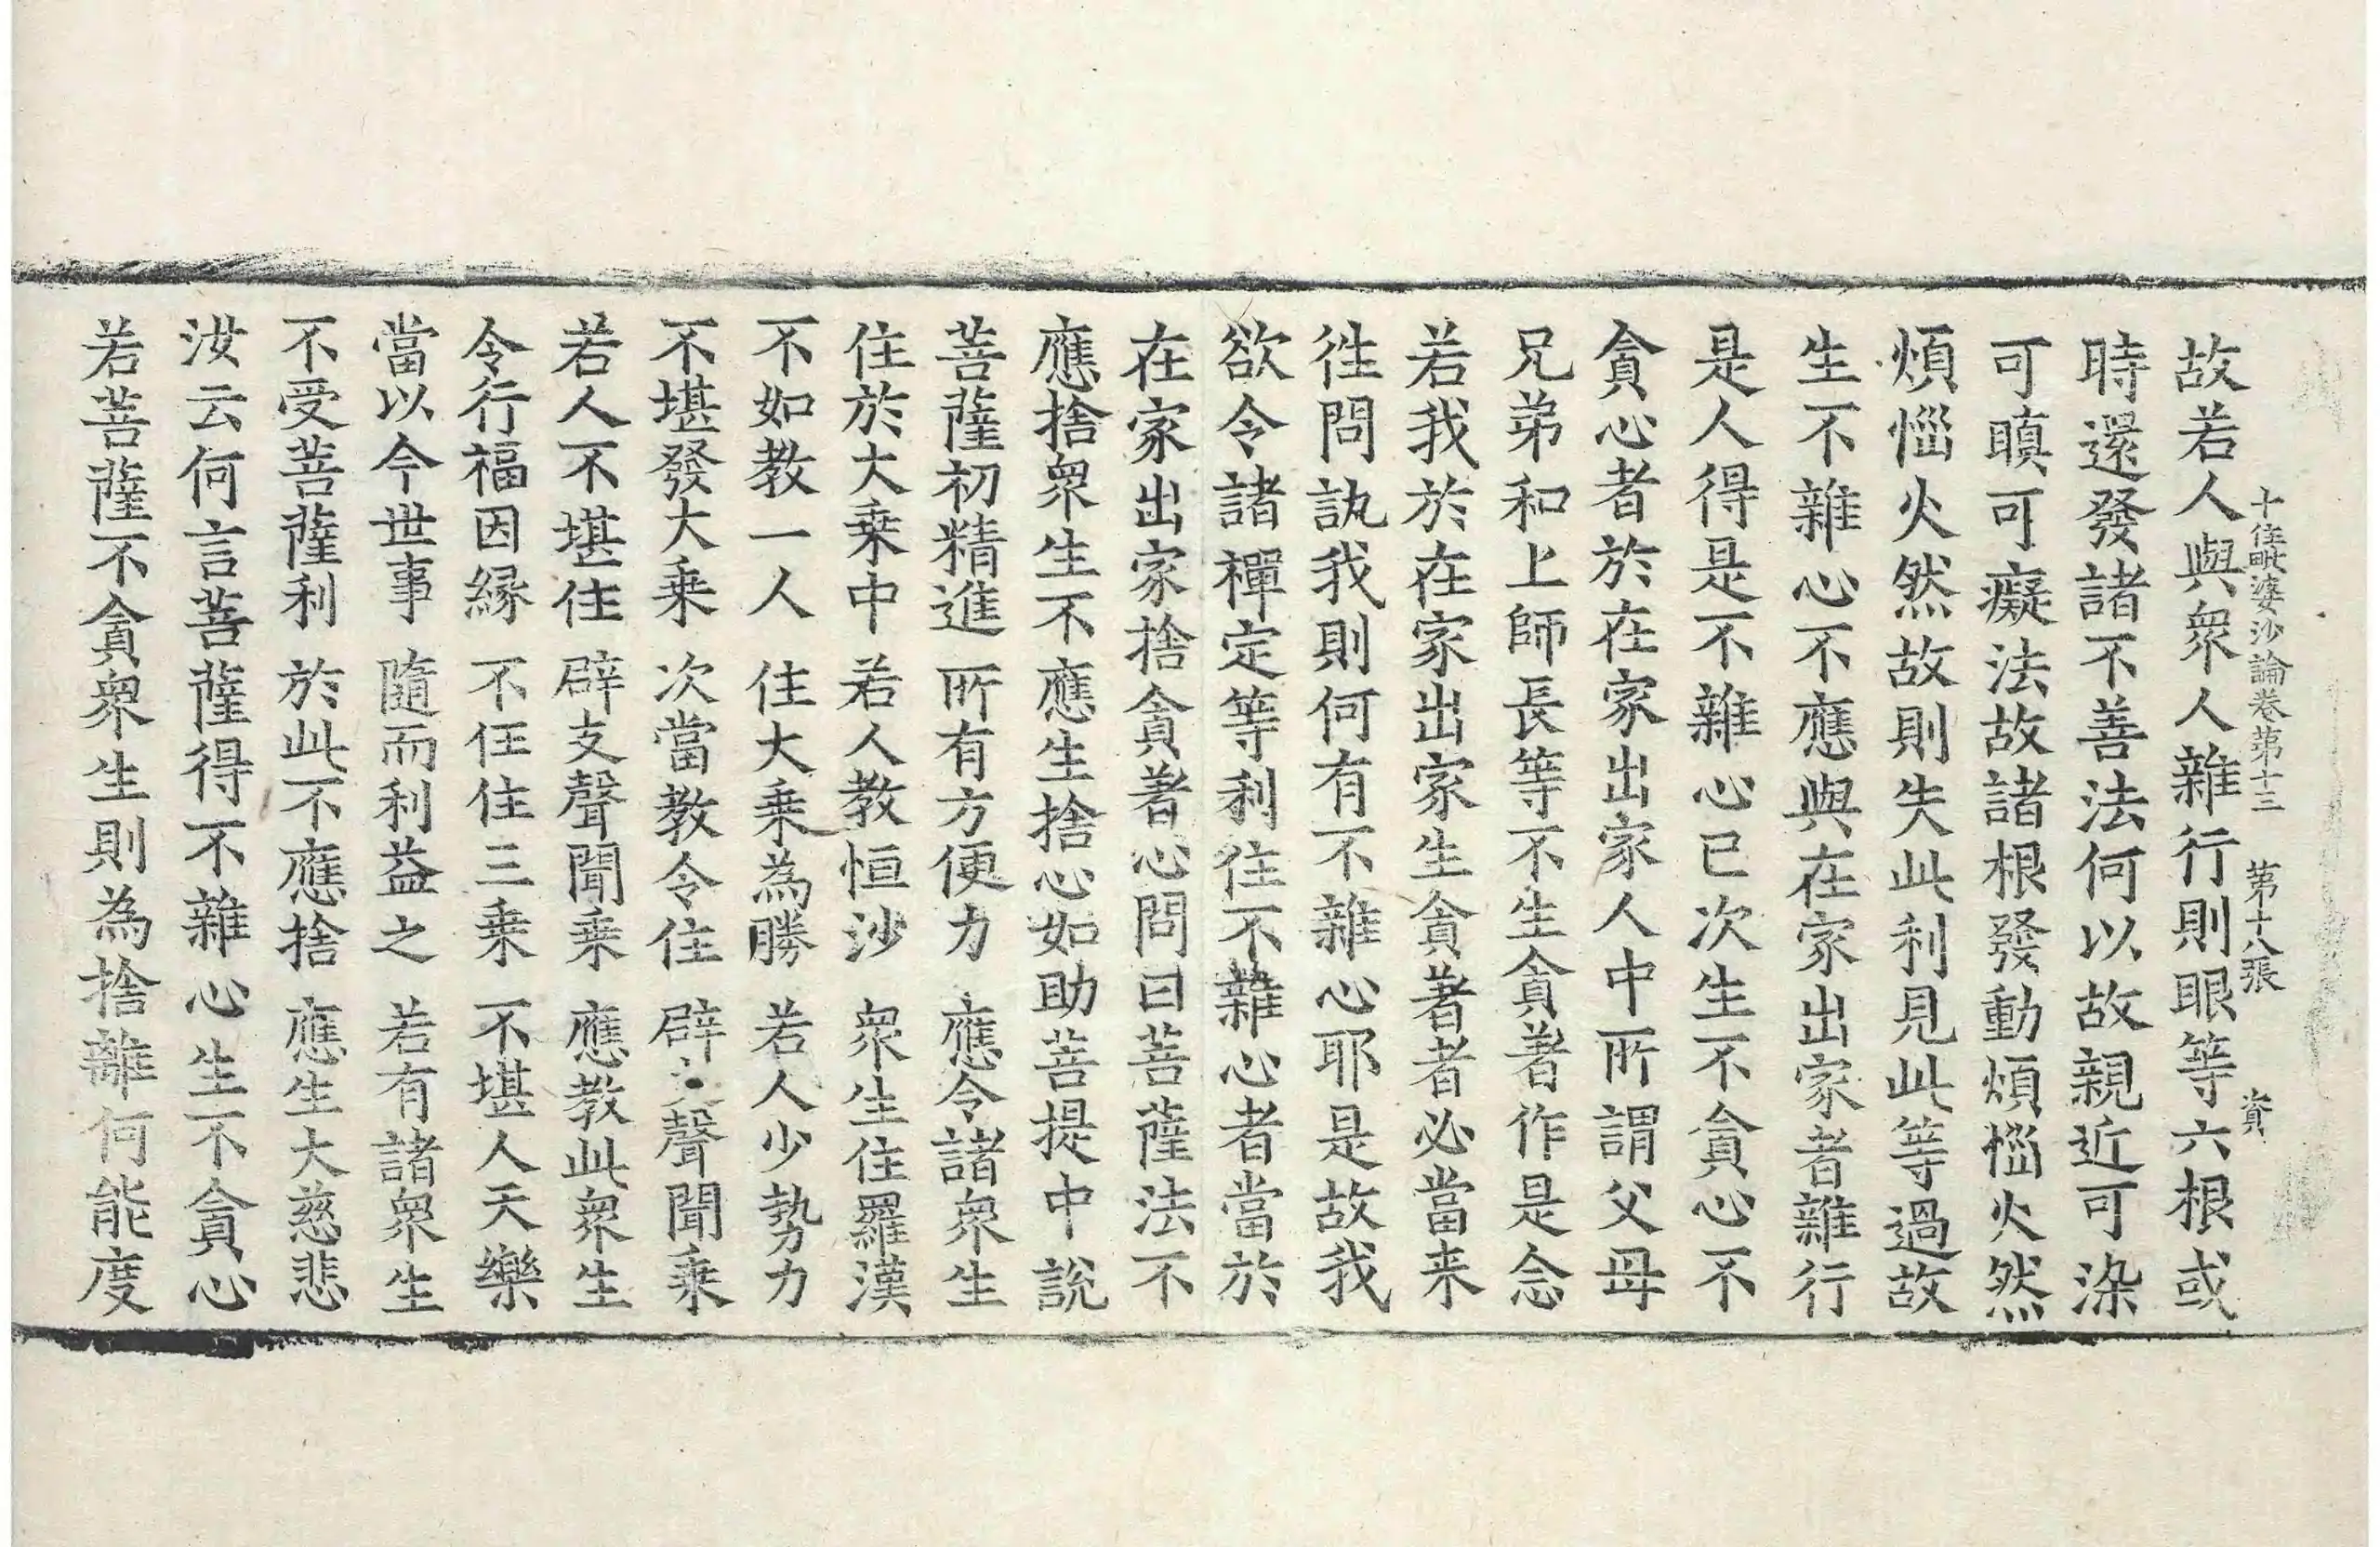 十住毗婆沙論卷第十三　第十八張　資
故若人與衆人雜行則眼等六根或
時還發諸不善法何以故親近可染
可瞋可癡法故諸根發動煩惱火然
煩惱火然故則失此利見此等過故
生不雜心不應與在家出家者雜行
是人得是不雜心已次生不貪心不
貪心者於在家出家人中所謂父母
兄弟和上師長等不生貪著作是念
若我於在家出家生貪著者必當来
徃問訊我則何有不雜心耶是故我
欲令諸禪定等利住不雜心者當於
在家出家捨貪著心問曰菩薩法不
應捨衆生不應生捨心如助菩提中說
菩薩初精進　所有方便力　應令諸衆生
住於大乗中　若人教恒沙　衆生住羅漢
不如教一人　住大乗為勝　若人少勢力
不堪發大乗　次當教令住　辟支聲聞乗
若人不堪住　辟支聲聞乗　應教此衆生
令行福因緣　不任住三乗　不堪人天樂
當以今世事　隨而利益之　若有諸衆生
不受菩薩利　於此不應捨　應生大慈悲
汝云何言菩薩得不雜心生不貪心
若菩薩不貪衆生則為捨離何能度